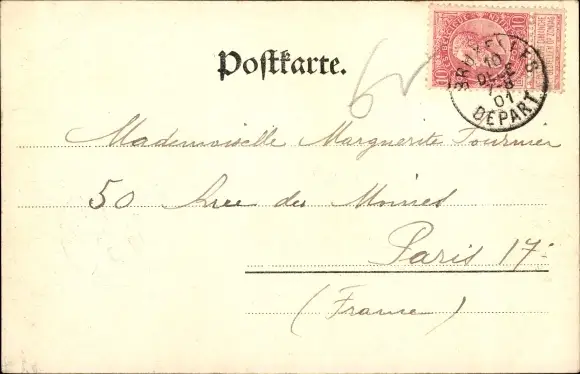 Postkarte.
10 10
BRUXELLES
10
DEPART
01
Mademoiselle Marguerite Fournier
50 Rue des Moines
Paris 17e
(France)